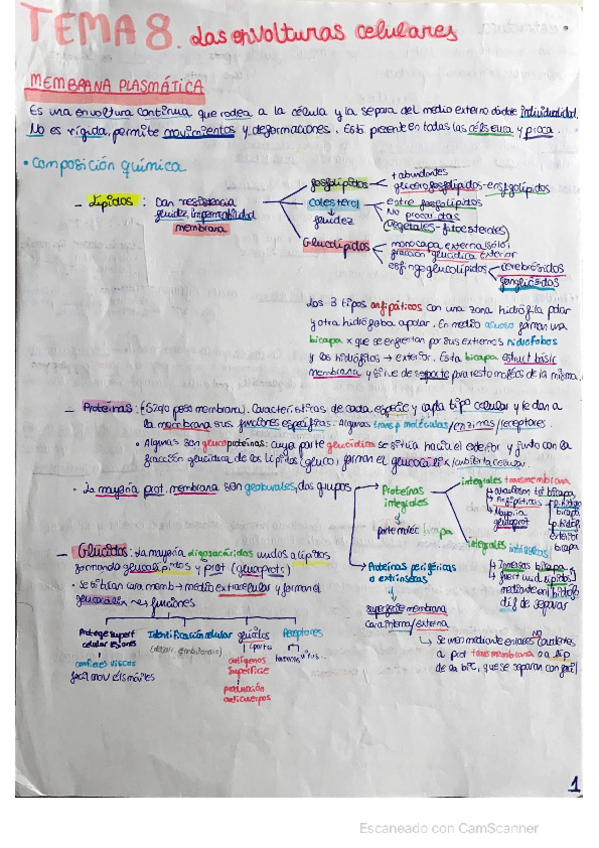 TEMA 8. Las envolturas celulares
MEMBRANA PLASMÁTICA
Es una envoltura continua que rodea a la célula y la separa del medio externo dándole individualidad.
No es rígida, permite movimientos y deformaciones. Está presente en todas las céls euca y proca.
• Composición química
- Lípidos: Dan resistencia
fluidez, impermeabilidad
membrana
fosfolípidos
+ abundantes
glicerofosfolípidos - esfingolípidos
colesterol
↓
fluidez
entre fosfolípidos
No procariotas
(vegetales - fitoesteroles)
Glucolípidos
monocapa externa (sólo)
fracción glucídica exterior
esfingoglucolípidos
cerebrósidos
gangliósidos
Los 3 tipos anfipáticos con una zona hidrófila polar
y otra hidrófoba apolar. En medio acuoso forman una
bicapa x que se enfrentan por sus extremos hidrófobos
y los hidrófilos → exterior. Esta bicapa estruct básic
membrana y sirve de soporte para resto moléc de la misma.
- Proteínas: (50% peso membrana). Características de cada especie y cada tipo celular y le dan a
la membrana sus funciones específicas. Algunas transp moléculas/enzimas/receptores.
• Algunas son glucoproteínas: cuya parte glucídica se sitúa hacia el exterior y junto con la
fracción glucídica de los lípidos (gluco) forman el glucocálix/cubierta celular.
• La mayoría prot. membrana son globulares, dos grupos
Proteínas
integrales
↓
parte moléc bicapa
integrales transmembrana
Anfipáticas
Mayoría
glucoprot
exterior
bicapa
integrales
↳ Inmersas bicapa
↳ fuert unid. lípidos
mediante
dif de separar
Proteínas periféricas
o extrínsecas
↓
superficie membrana
cara interna/externa
↳ Se unen mediante enlaces NO covalentes
a prot transmembrana o a líp
de la bic, que se separan con facil
- Glúcidos: La mayoría oligosacáridos unidos a lípidos
formando glucolípidos y prot (glucoprots)
• Se sitúan cara memb → medio extracelular y forman el
glucocálix → funciones
Protege superf
celular lesiones
↓
confiere viscos
facil mov céls móviles
Identificación celular
glúcidos
antígenos
superficie
↓
producción
anticuerpos
Receptores
1
Escaneado con CamScanner